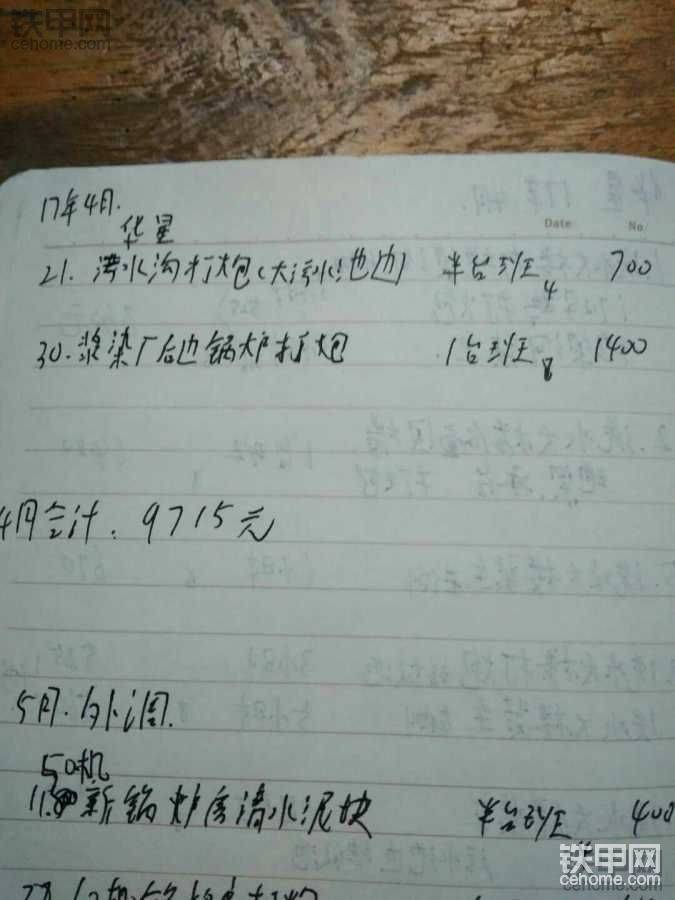 铁甲网
cehome.com
17年4月.
Date No
华星
21. 清水沟打炮(大污水池边) 半台班4 700
30. 浆染厂后边锅炉打炮 1台班8 1400
4月合计: 9715元
5月.外调.
50机
11. 新锅炉房清水泥块 半台班 400
铁甲网
cehome.com